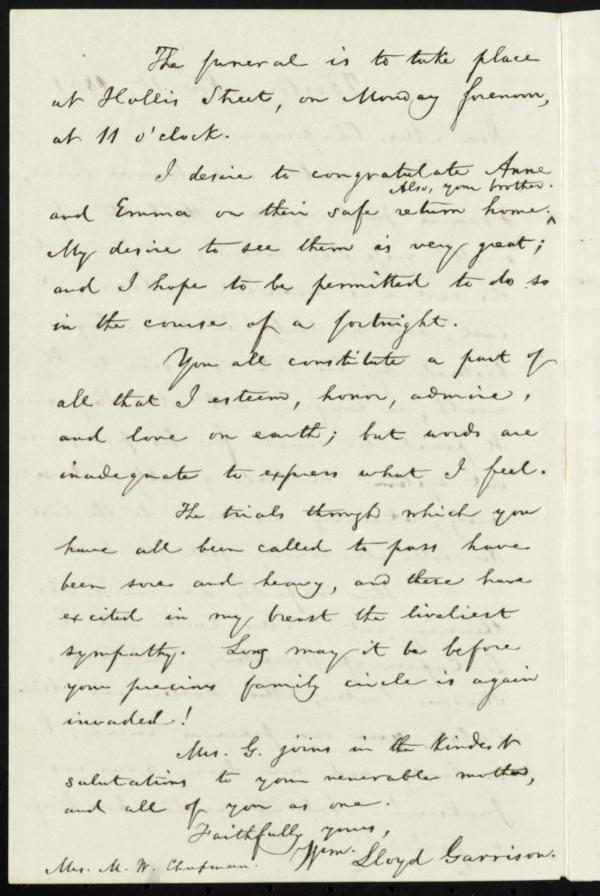 The funeral is to take place
at Hollis Street, on Monday forenoon,
at 11 o'clock.
I desire to congratulate Anne
Also, your brother.
and Emma on their safe return home. ^
My desire to see them is very great;
and I hope to be permitted to do so
in the course of a fortnight.
You all constitute a part of
all that I esteem, honor, admire,
and love on earth; but words are
inadequate to express what I feel.
The trials through which you
have all been called to pass have
been sore and heavy, and these have
excited in my breast the liveliest
sympathy. Long may it be before
your precious family circle is again
invaded!
Mrs. G. joins in the kindest
salutations to your venerable mother,
and all of you as one.
Faithfully yours,
Wm. Lloyd Garrison.
Mrs. M. W. Chapman.